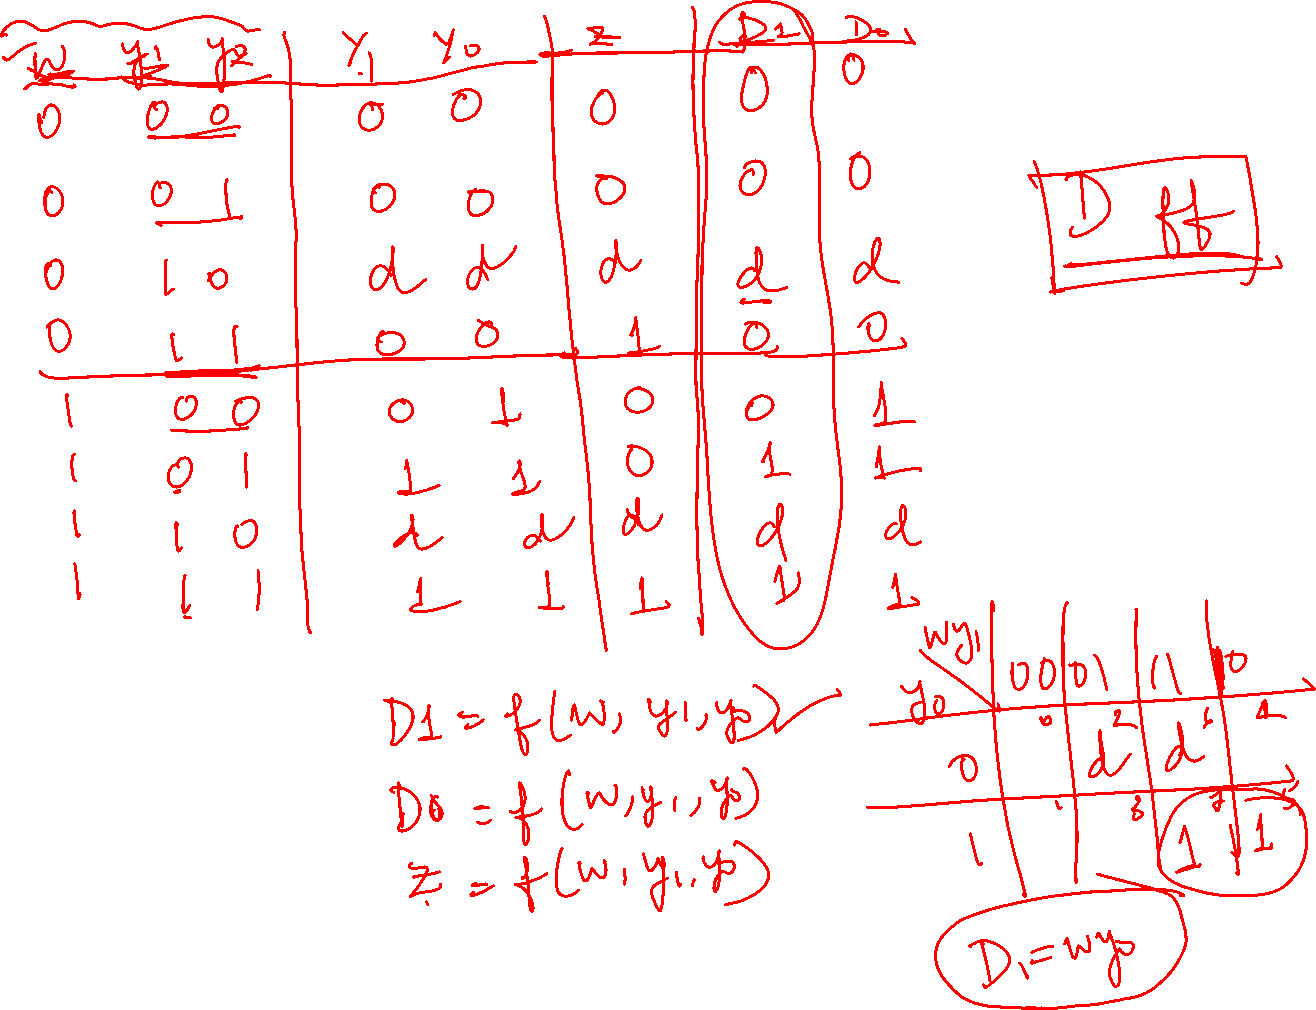 w y1 y2 Y1 Y0 z D1 D0
0 0 0 0 0 0 0 0
0 0 1 0 0 0 0 0
0 1 0 d d d d d
0 1 1 0 0 1 0 0
1 0 0 0 1 0 0 1
1 0 1 1 1 0 1 1
1 1 0 d d d d d
1 1 1 1 1 1 1 1
D ff
D1 = f(w, y1, y0)
D0 = f(w, y1, y0)
z = f(w, y1, y0)
wy1
y0 00 01 11 10
0 2 6 4
0 d d
1 3 7 5
1 1 1
D1 = wy0